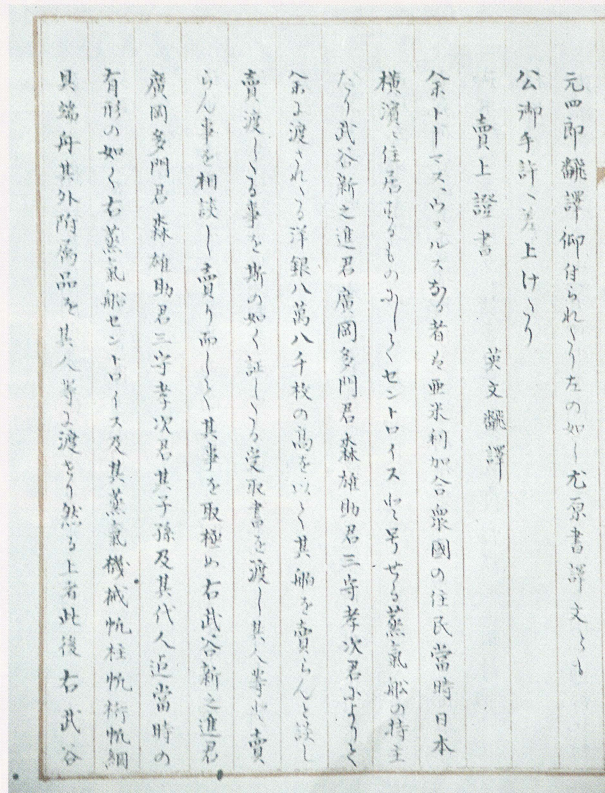 元四郎飜譯仰付られたり左の如し尤原書譯文とも
公御手許へ差上けたり
賣上證書
英文飜譯
余トーマス、ウヲルスなる者は亜米利加合衆國の住民當時日本
横濱に住居するものにしてセントロイスと号せる蒸氣船の持主
なり武谷新之進君廣岡多門君森雄助君三守孝次君によりて
余に渡されたる洋銀八萬八千枚の高を以て其舶を賣らんと談し
賣渡したる事を斯の如く証したる受取書を渡し其人等と賣
らん事を相談し賣り而して其事を取極め右武谷新之進君
廣岡多門君森雄助君三守孝次君其子孫及其代人迄當時の
有形の如く右蒸氣舩セントロイス及其蒸氣機械帆柱帆桁帆綱
具端舟其外附属品を其人等に渡せり然る上者此後右武谷